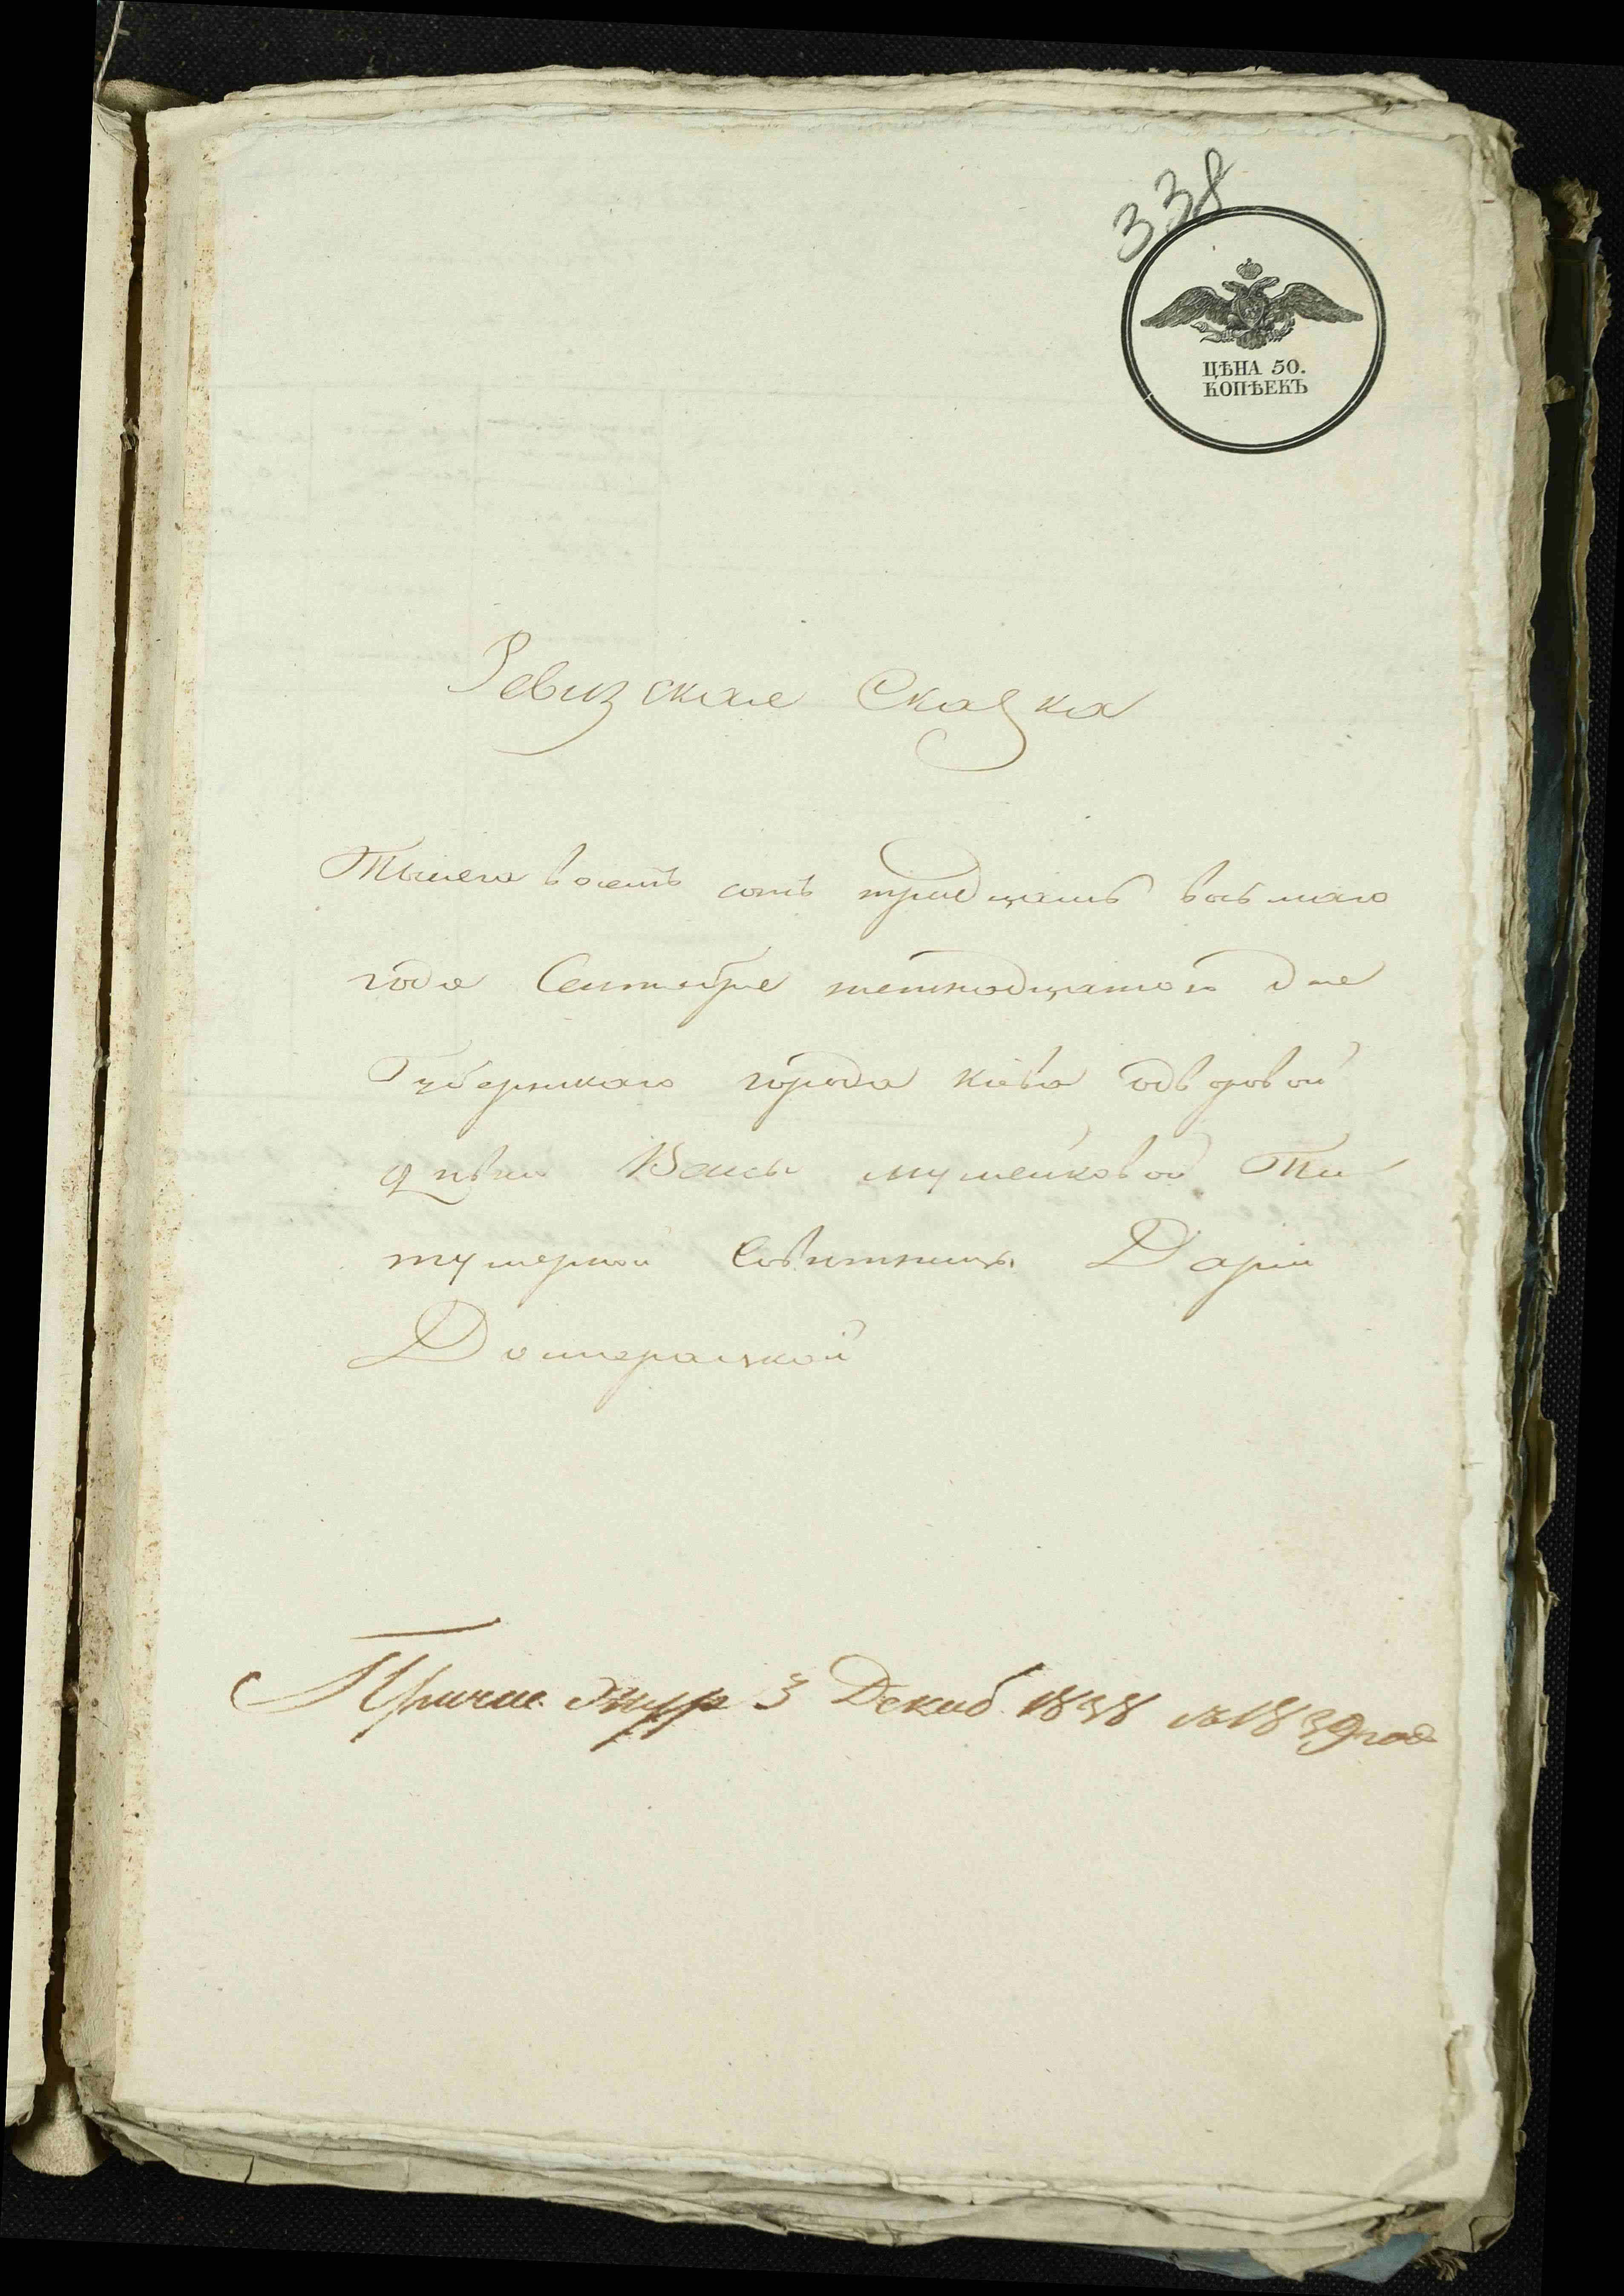 338
ЦѢНА 50.
КОПѢЕКЪ
Ревизская Сказка
Тысеча восемъ сотъ тридцать восьмаго
года Сентября пятнадцатого дня
Губернскаго города Кіева о дворовой
дѣвки Васы Ти
тулярной Совѣтницы Даріи
Домперальской
3 Декаб 1838 1839 год